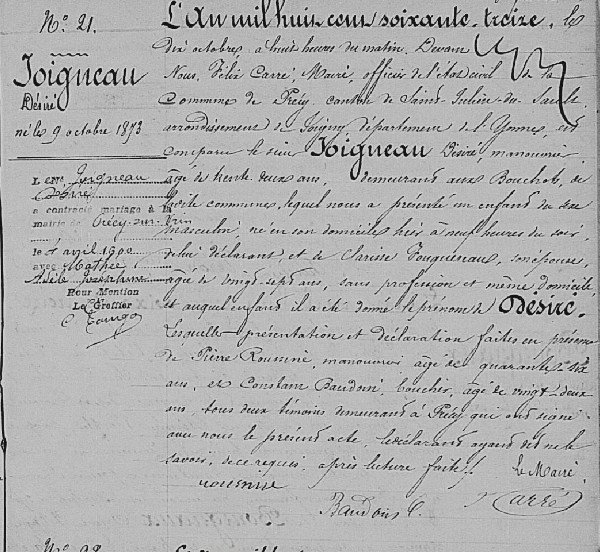 No. 21.
Joigneau
Désiré
né le 9 octobre 1873
Le sr Joigneau
Désiré
a contracté mariage à la
mairie de Précy-sur-Vrin
le avril 1900
avec Mathée
Adèle
Pour Mention
Le Greffier
L'An mil huit cent soixante-treize, le
dix octobre, à huit heures du matin, Devant
Nous, Félix Carré, Maire, officier de l'état civil de la
Commune de Précy, canton de Saint-Julien-du-Sault,
arrondissement de Joigny, département de l'Yonne, est
comparu le sieur Joigneau Désiré, manouvrier
âgé de trente deux ans, demeurant aux Bouchots, de
cette commune, lequel nous a présenté un enfant du sexe
masculin, né en son domicile hier à neuf heures du soir,
de lui déclarant et de Clarisse Fouquereau, son épouse,
âgée de vingt-sept ans, sans profession et même domicile,
et auquel enfant il a été donné le prénom de Désiré.
Lesquelles présentation et déclaration faites en présence
de Pierre manouvrier âgé de quarante-six
ans, et Constant Baudoin, boucher, âgé de vingt-deux
ans, tous deux témoins demeurant à Précy qui ont signé
avec nous le présent acte, le déclarant ayant dit ne le
savoir, de ce requis, après lecture faite.
Le Maire
Baudoin C. Carré
No. 22.